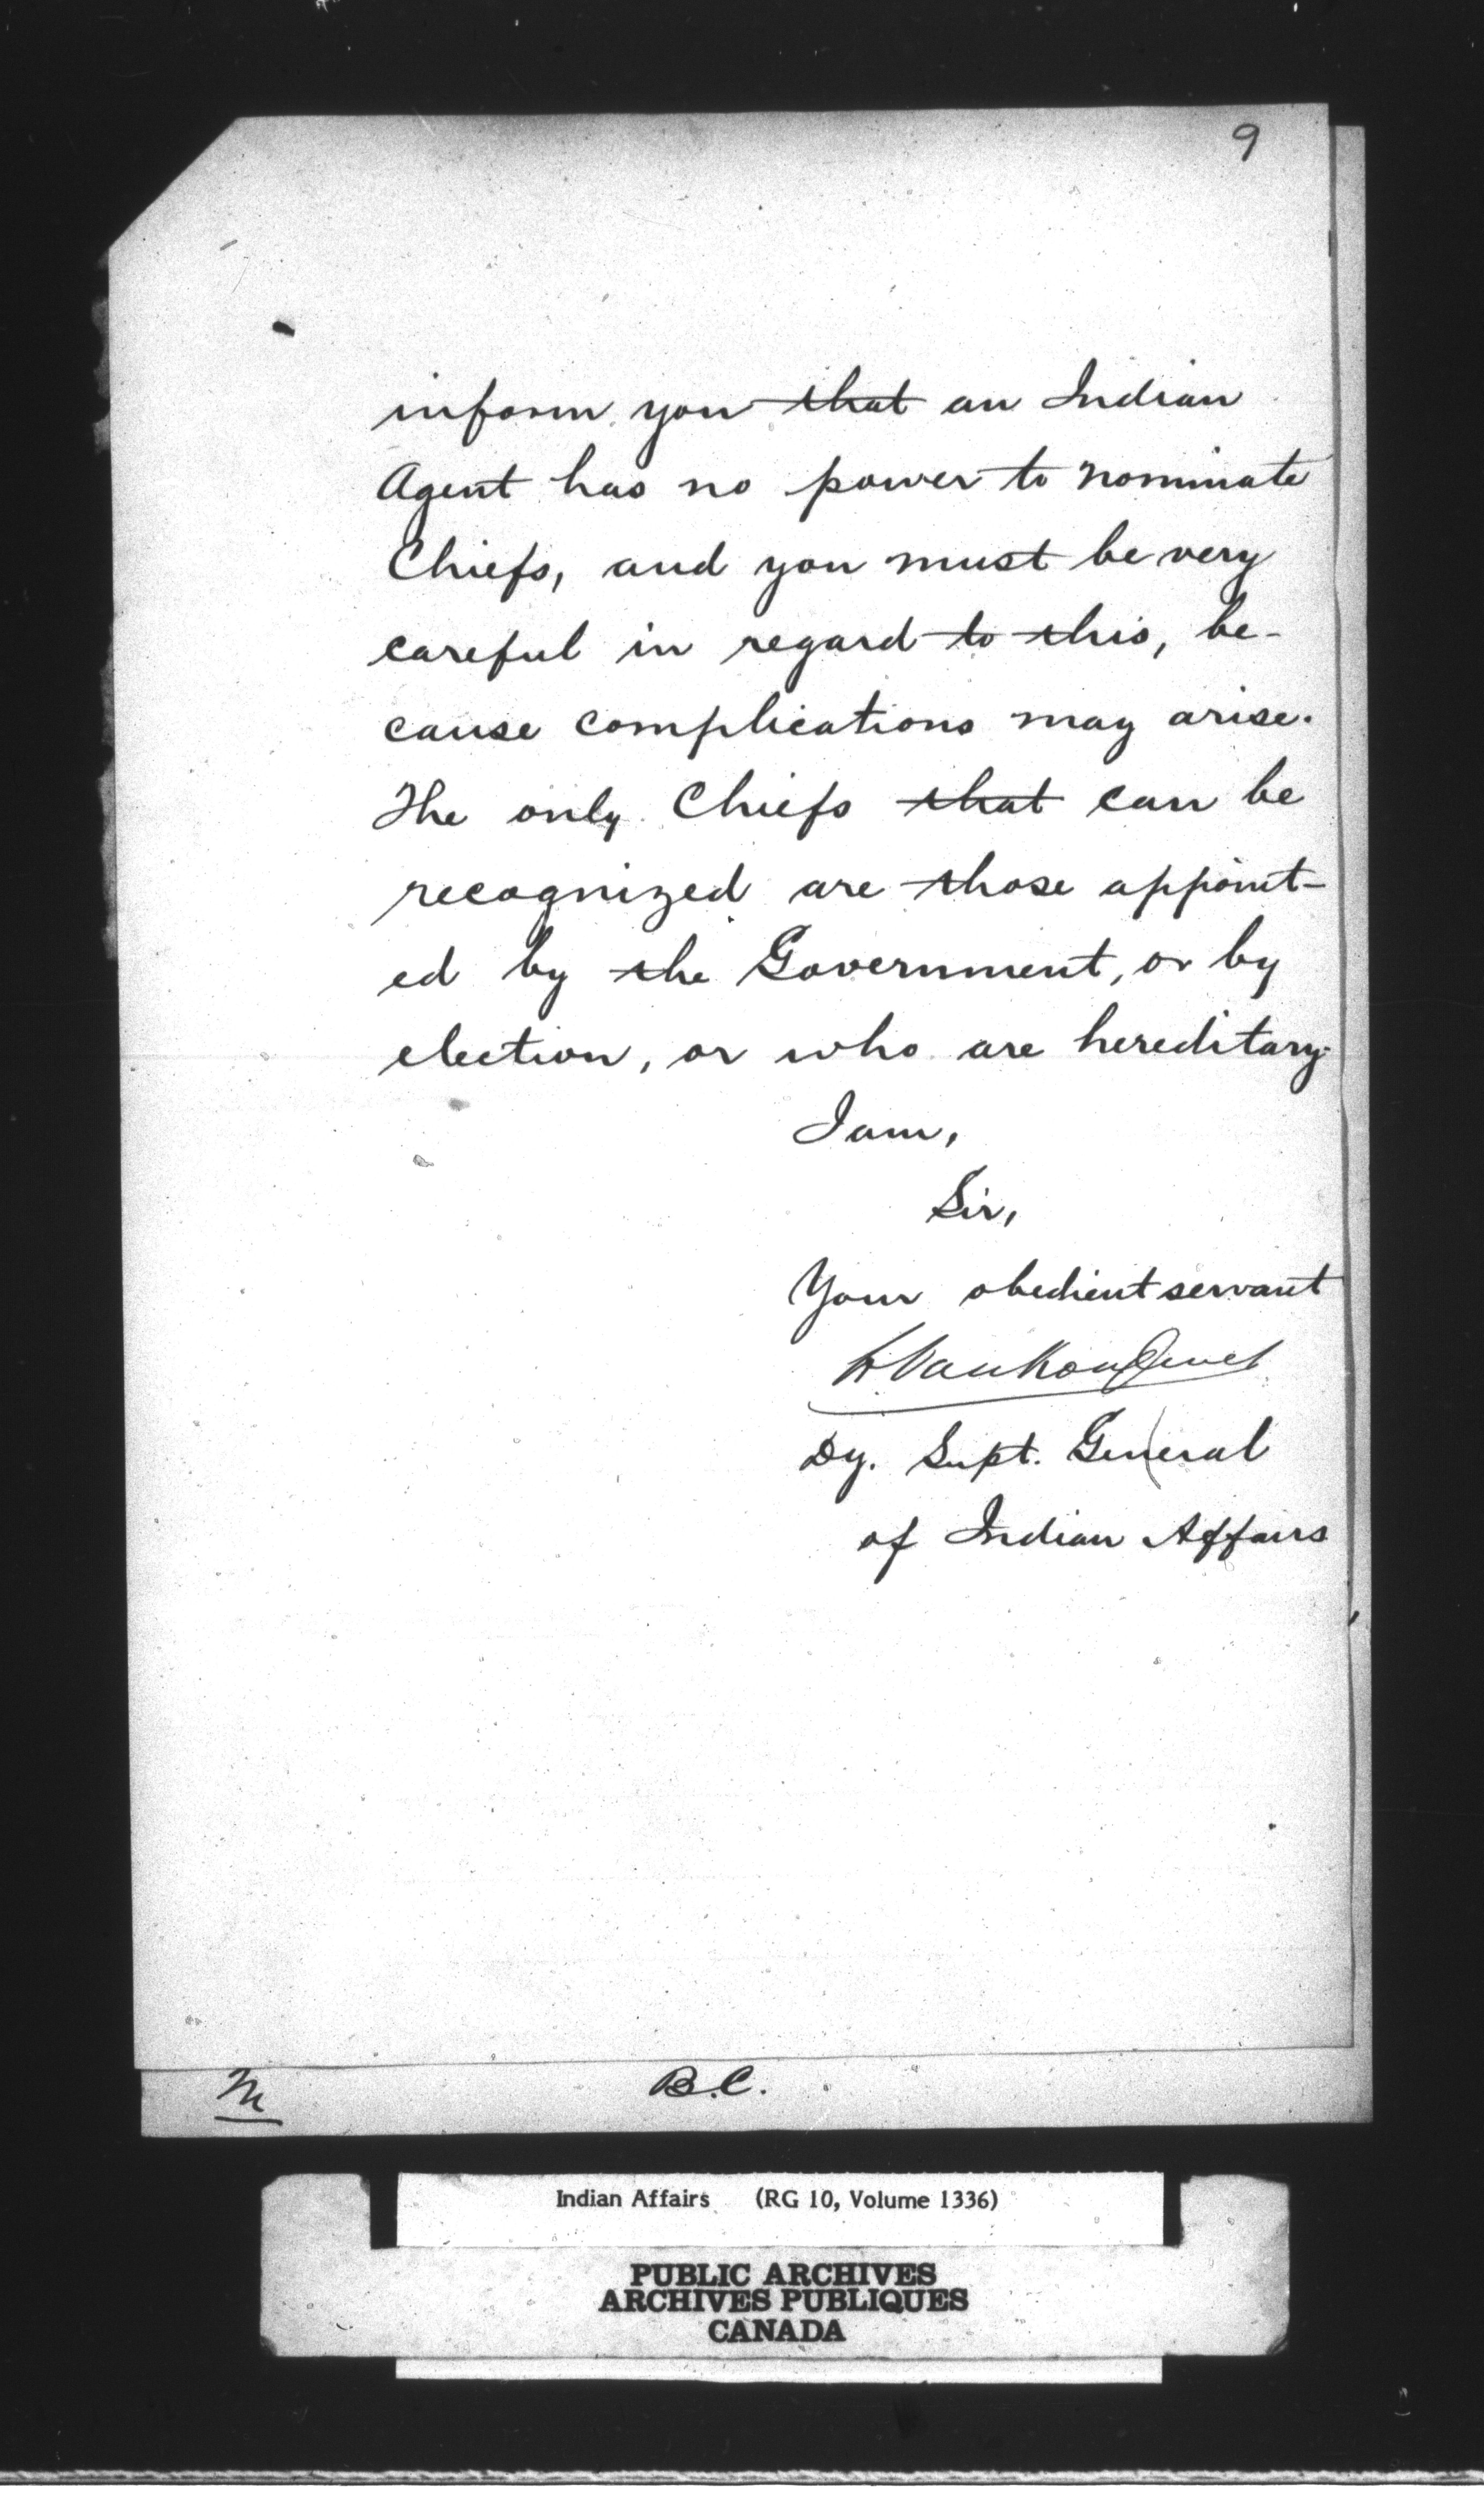 9
inform you that an Indian
Agent has no power to nominate
Chiefs, and you must be very
careful in regard to this, be-
cause complications may arise.
The only Chiefs that can be
recognized are those appoint-
ed by the Government, or by
election, or who are hereditary.
I am,
Sir,
Your obedient servant
L. VanKoughnet
Dy. Supt. General
of Indian Affairs
B.C.
Indian Affairs (RG 10, Volume 1336)
PUBLIC ARCHIVES
ARCHIVES PUBLIQUES
CANADA